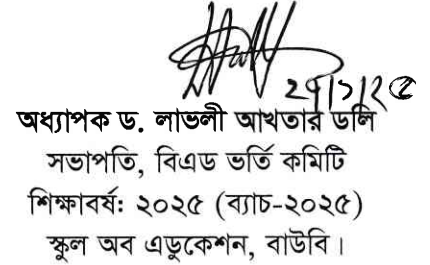 ২৭/১/২৫
অধ্যাপক ড. লাভলী আখতার ডলি
সভাপতি, বিএড ভর্তি কমিটি
শিক্ষাবর্ষ: ২০২৫ (ব্যাচ-২০২৫)
স্কুল অব এডুকেশন, বাউবি।